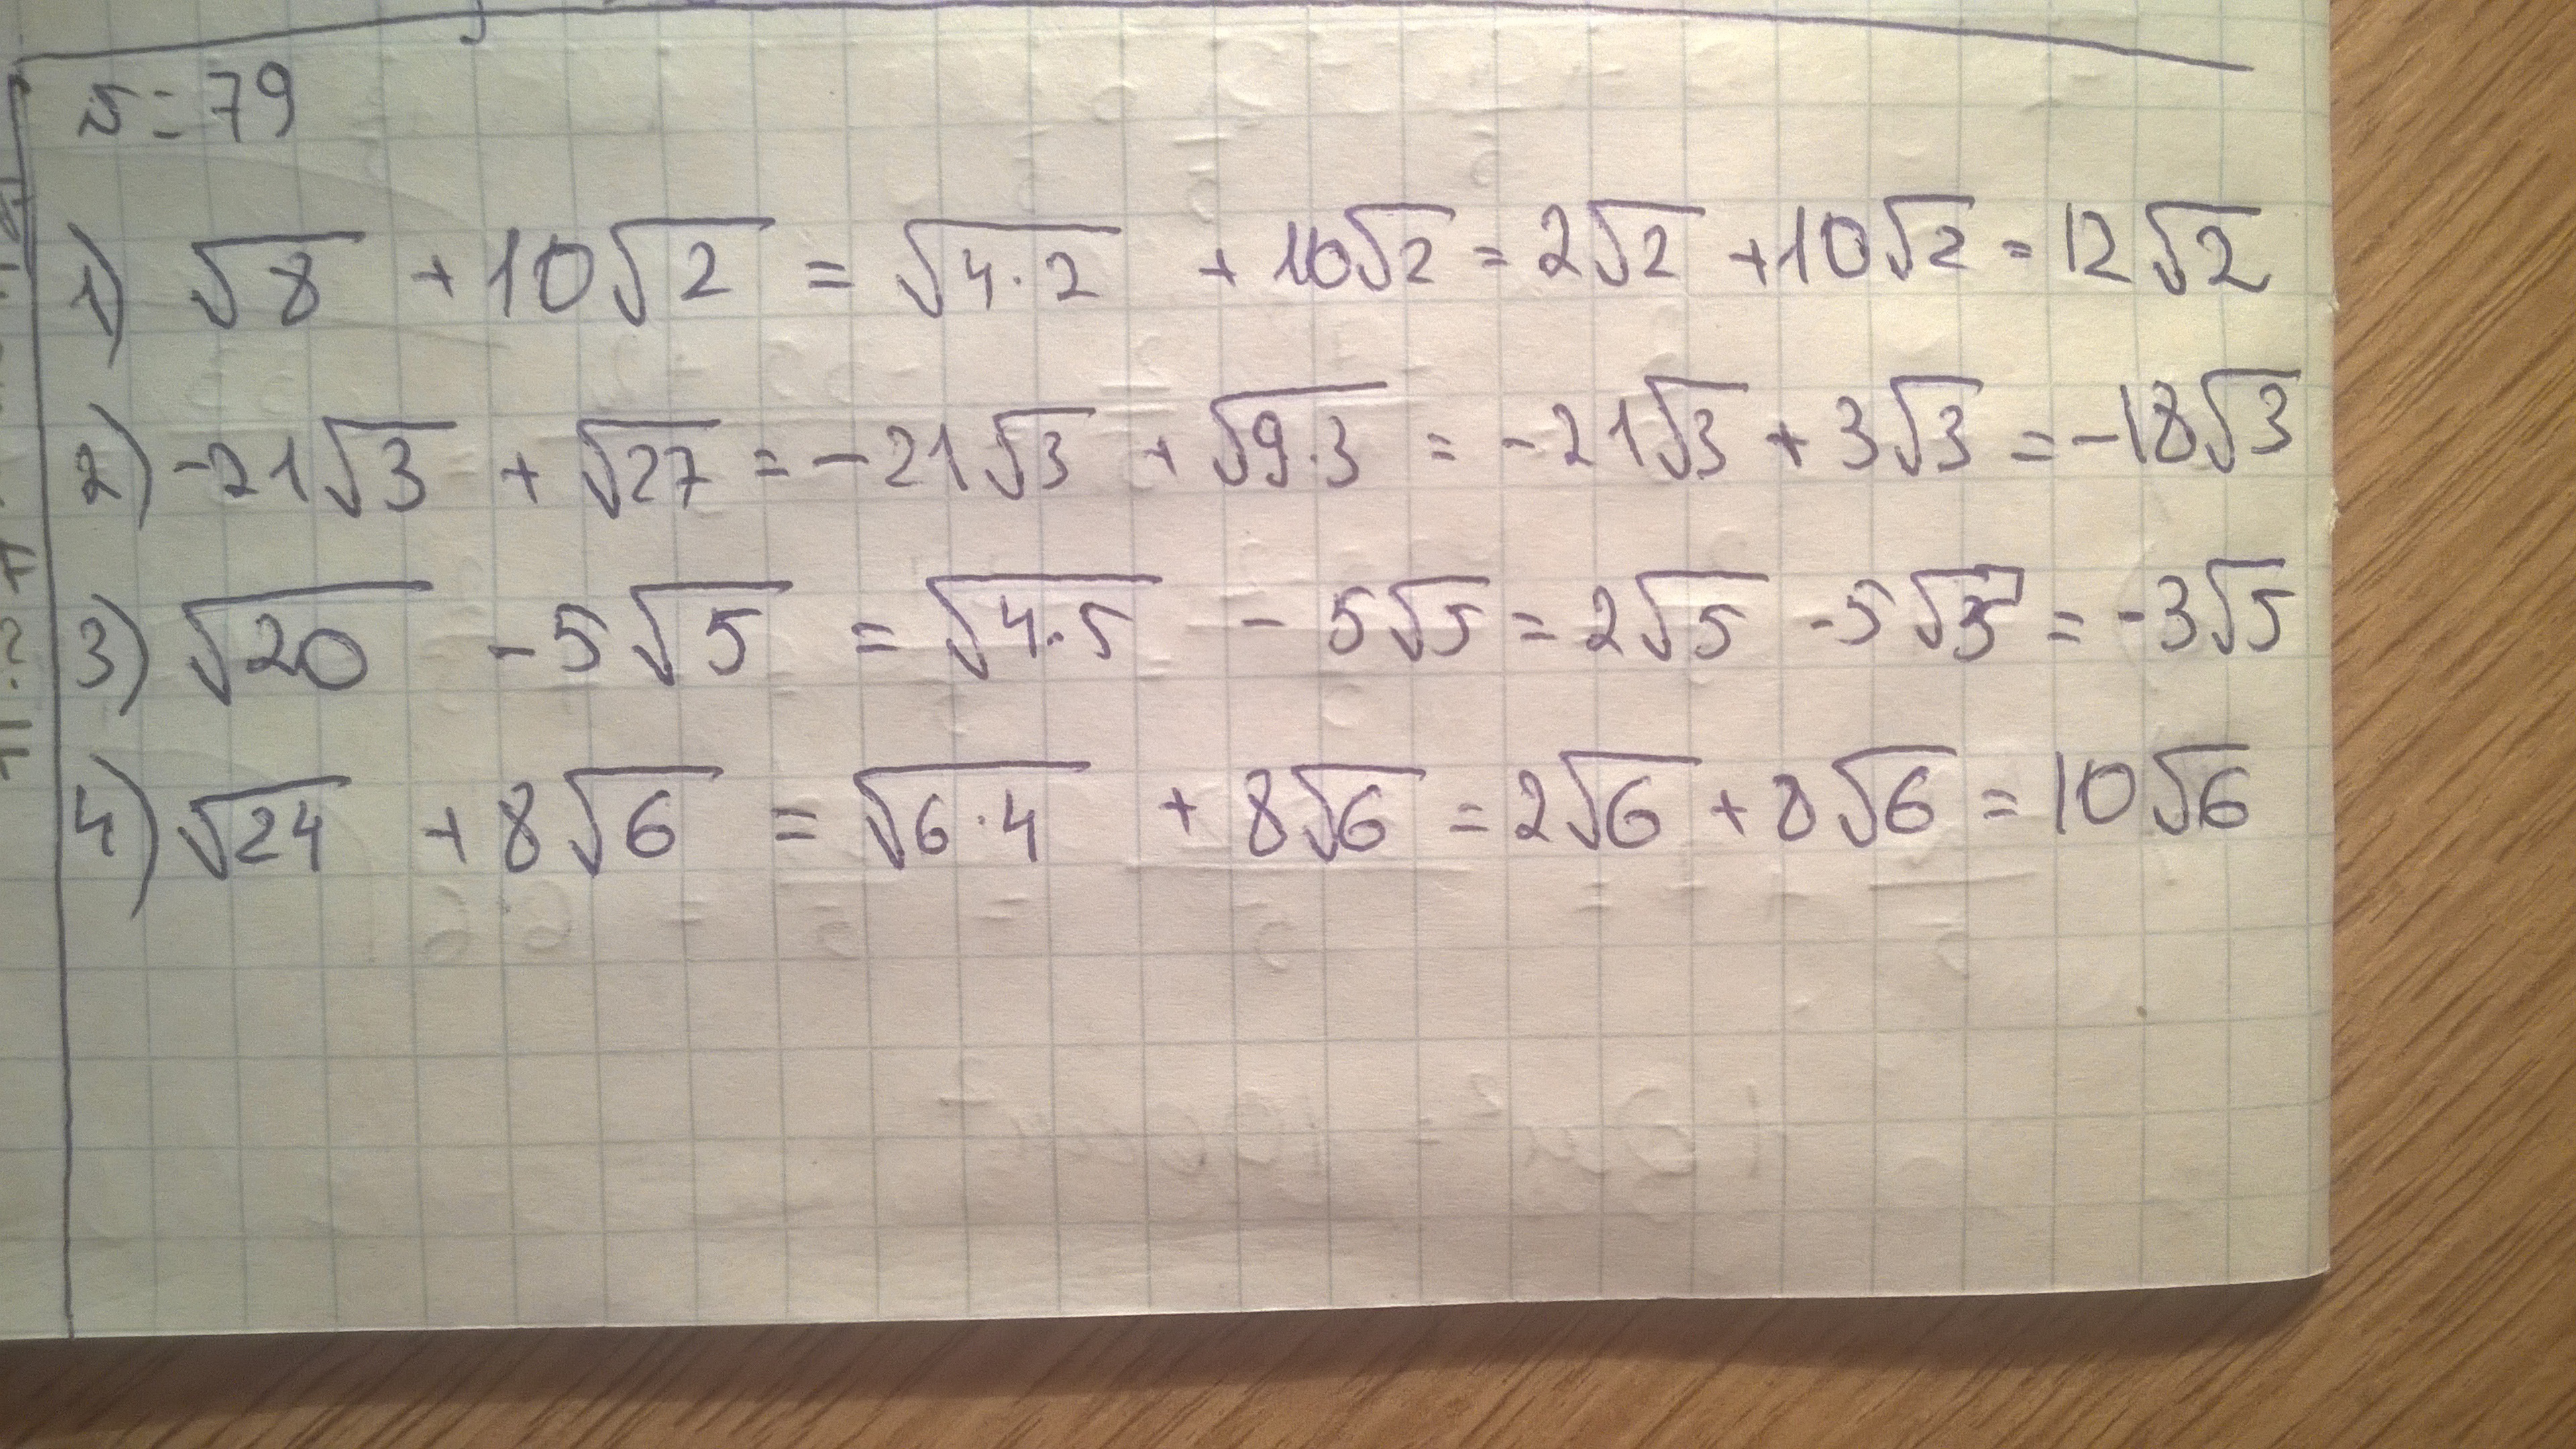 N=79
1) √8 + 10√2 = √4·2 + 10√2 = 2√2 + 10√2 = 12√2
2) -21√3 + √27 = -21√3 + √9·3 = -21√3 + 3√3 = -18√3
3) √20 - 5√5 = √4·5 - 5√5 = 2√5 - 5√5 = -3√5
4) √24 + 8√6 = √6·4 + 8√6 = 2√6 + 8√6 = 10√6